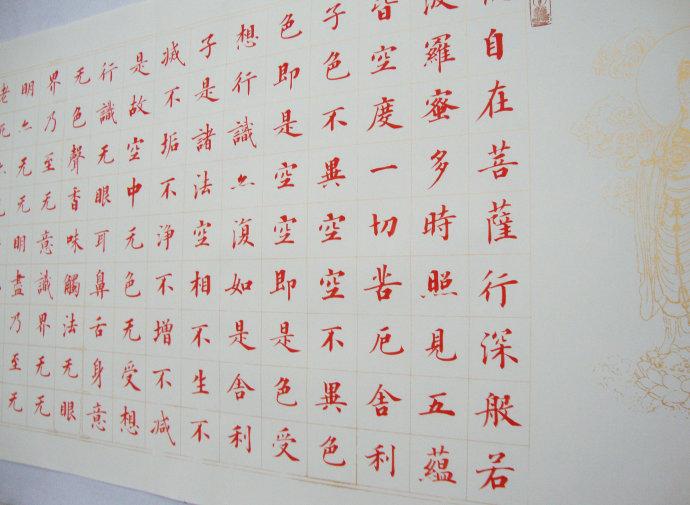 自在菩薩行深般若
波羅蜜多時照見五蘊
皆空度一切苦厄舍利
子色不異空空不異色
色即是空空即是色受
想行識亦復如是舍利
子是諸法空相不生不
滅不垢不淨不增不減
是故空中无色无受想
行識无眼耳鼻舌身意
无色聲香味觸法无眼
界乃至无意識界无无
明亦无无明盡乃至无
老